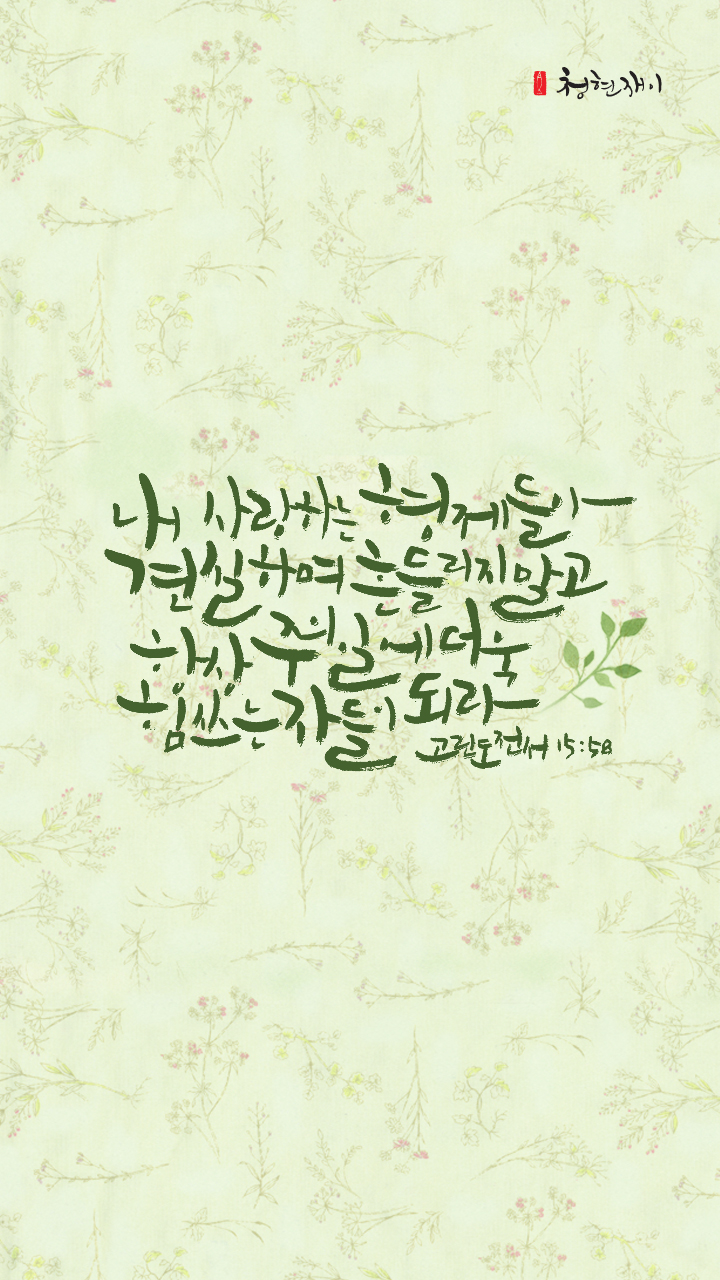 청현재이
내 사랑하는 형제들아
견실하며 흔들리지 말고
항상 주의 일에 더욱
힘쓰는 자들이 되라
고린도전서 15:58